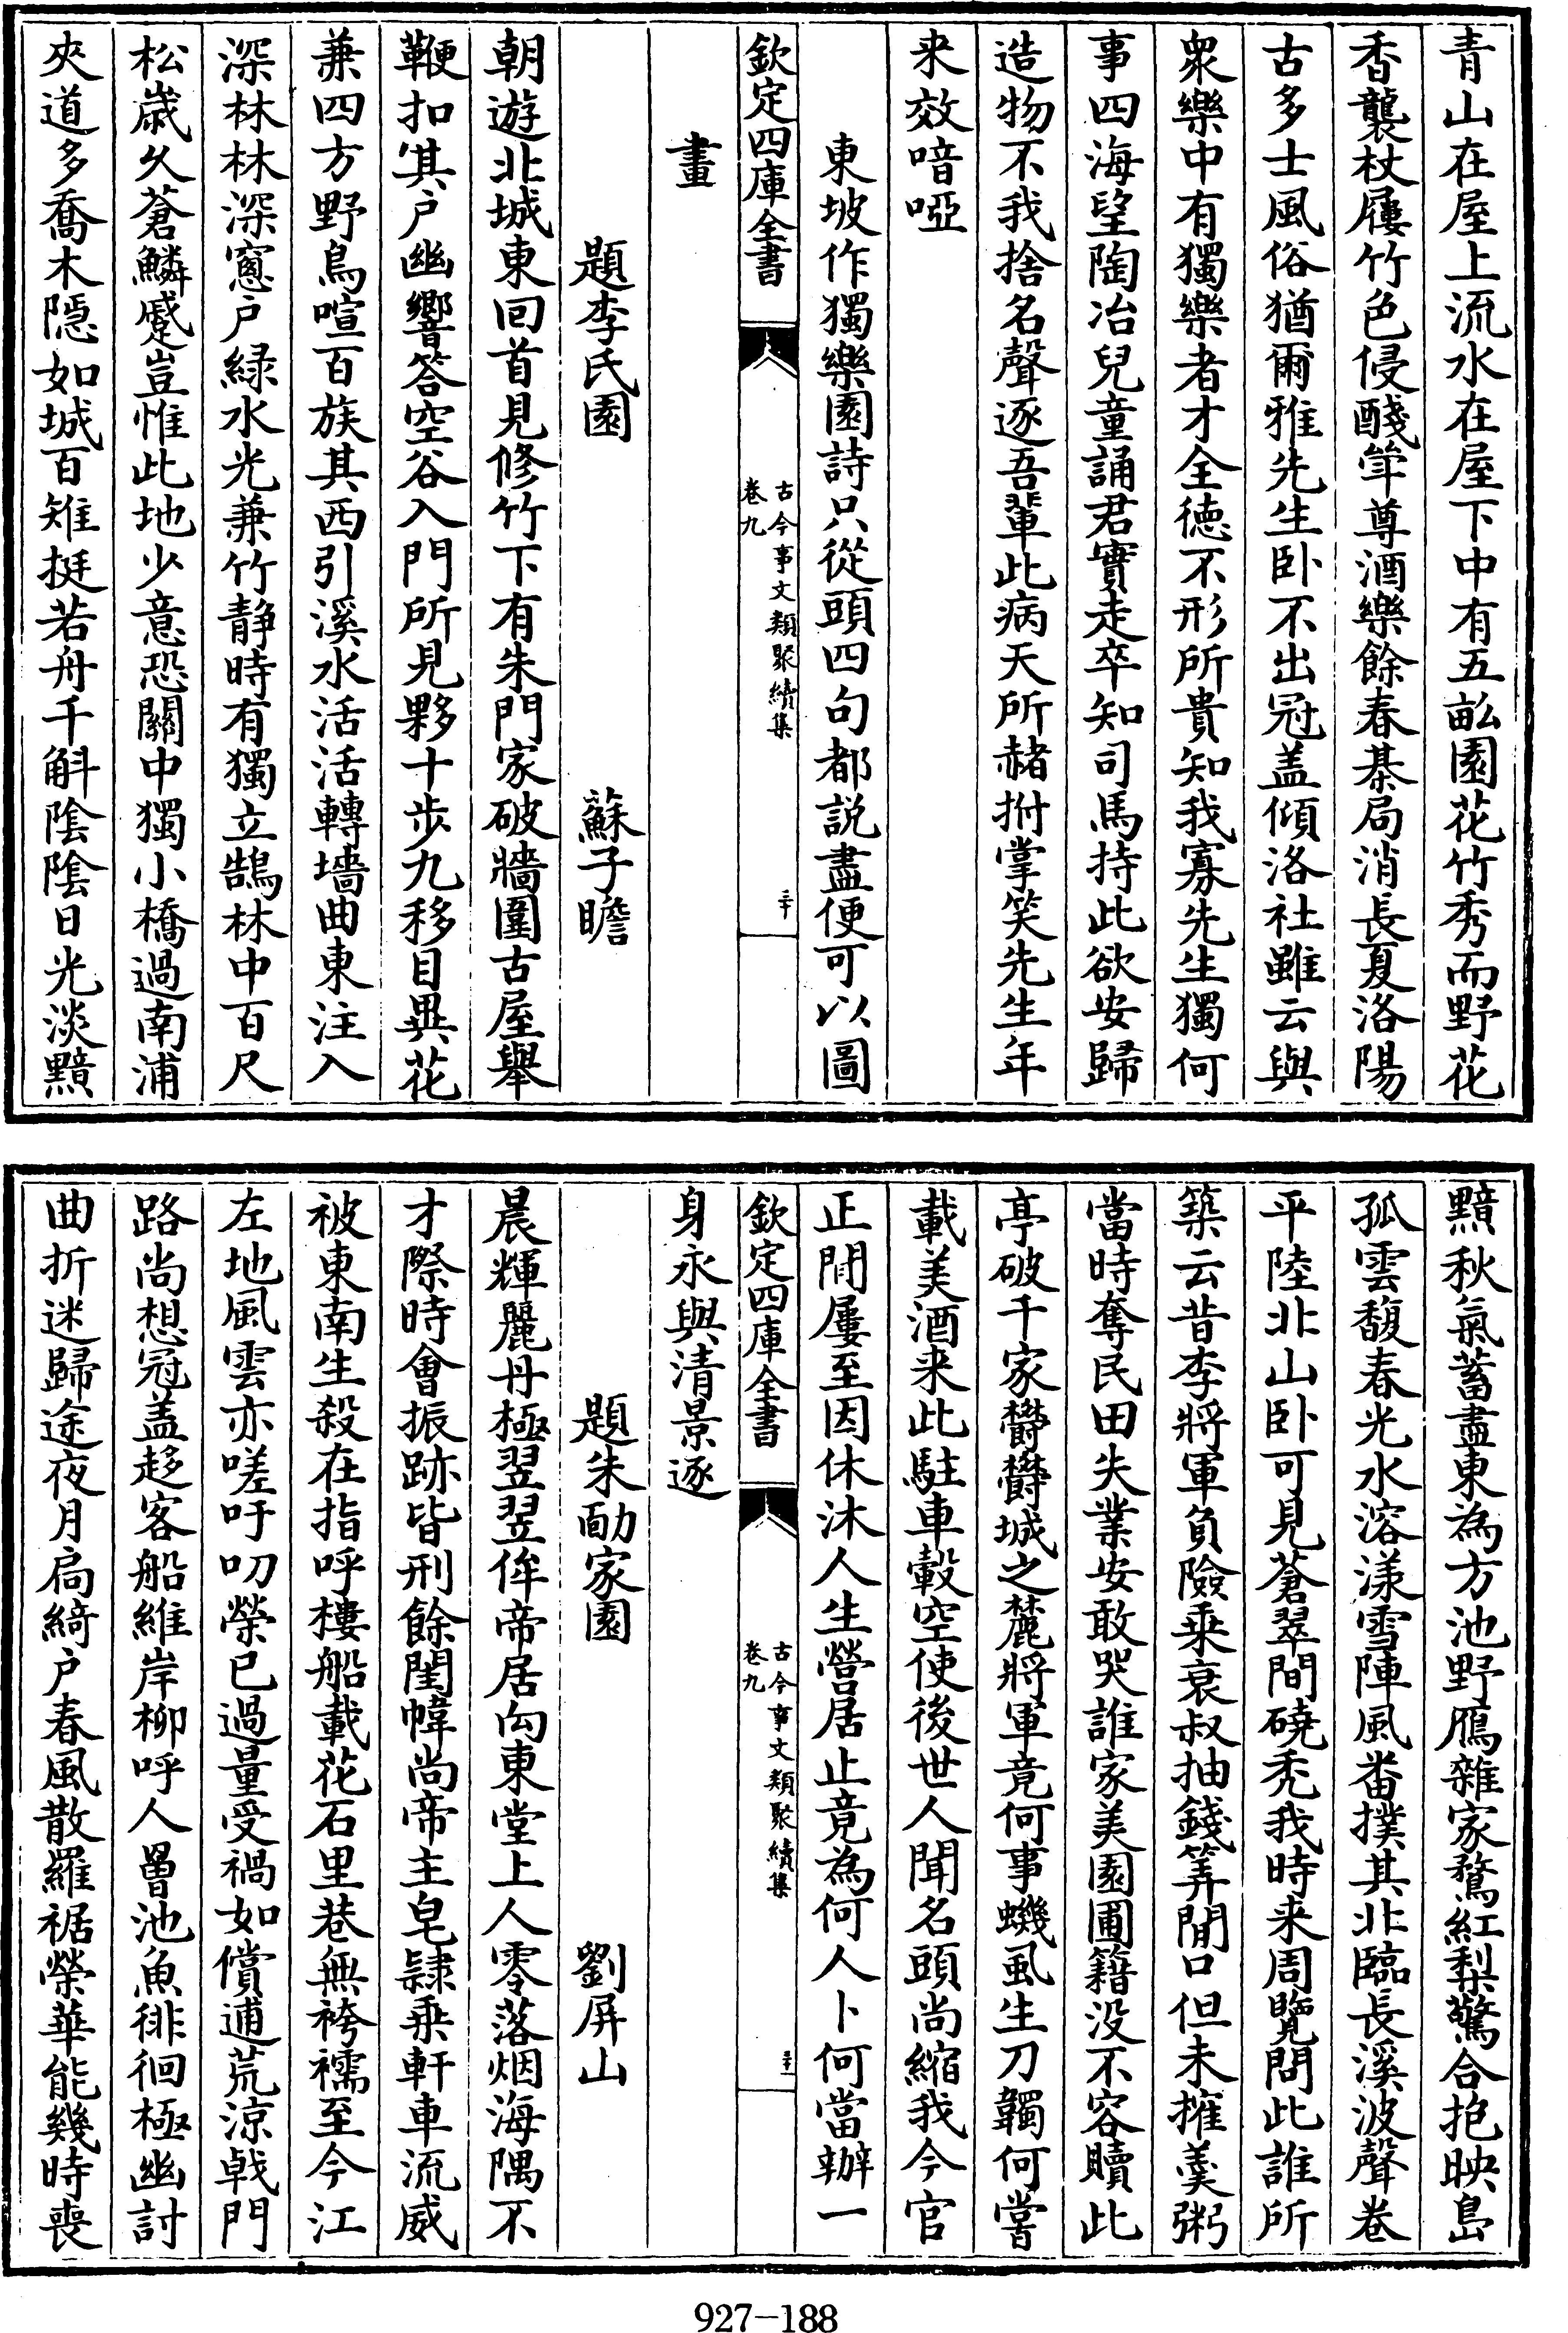 青山在屋上流水在屋下中有五畝園花竹秀而野花
香襲杖屨竹色侵醆斝尊酒樂餘春棊局消長夏洛陽
古多士風俗猶爾雅先生卧不出冠盖傾洛社雖云與
衆樂中有獨樂者才全徳不形所貴知我寡先生獨何
事四海望陶冶兒童誦君實走卒知司馬持此欲安歸
造物不我捨名聲逐吾軰此病天所赭拊掌笑先生年
来效喑啞
東坡作獨樂園詩只從頭四句都説盡便可以圖
欽定四庫全書
古今事文類聚續集
卷九
三十
畫
題李氏園 蘇子瞻
朝遊北城東回首見修竹下有朱門家破牆圍古屋舉
鞭扣其户幽響答空谷入門所見夥十步九移目異花
兼四方野鳥喧百族其西引溪水活活轉墻曲東注入
深林林深窻户緑水光兼竹静時有獨立鵠林中百尺
松歲久蒼鱗蹙豈惟此地少意恐關中獨小橋過南浦
夾道多喬木隠如城百雉挺若舟千斛陰陰日光淡黯
黯秋氣蓄盡東為方池野鴈雜家鶩紅梨驚合抱映島
孤雲馥春光水溶漾雪陣風番撲其北臨長溪波聲卷
平陸北山卧可見蒼翠間磽秃我時来周覽問此誰所
築云昔李將軍負險乗衰叔抽錢筭閒口但未搉羹粥
當時奪民田失業安敢哭誰家美園圃籍没不容贖此
亭破千家欝欝城之麓將軍竟何事蟣虱生刀韣何嘗
載美酒来此駐車轂空使後世人聞名頭尚縮我今官
正閒屢至因休沐人生營居止竟為何人卜何當辦一
欽定四庫全書
古今事文類聚續集
卷九
三十一
身永與清景逐
題朱勔家園 劉屏山
晨輝麗丹極翌翌侔帝居向東堂上人零落烟海隅不
才際時會振跡皆刑餘閨幃尚帝主皂𨽻乗軒車流威
被東南生殺在指呼樓船載花石里巷無袴襦至今江
左地風雲亦嗟吁叨榮已過量受禍如償逋荒涼㦸門
路尚想冠盖趍客船維岸栁呼人曽池魚徘徊極幽討
曲折迷歸途夜月扃綺户春風散羅裾榮華能幾時喪
927-188